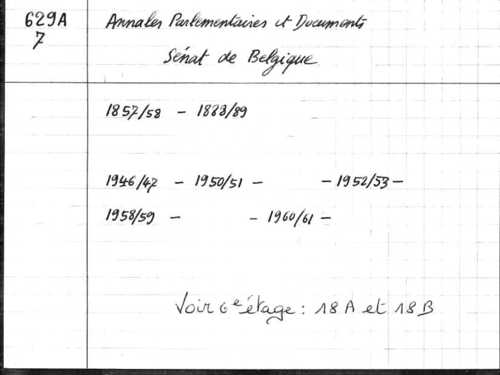 629A
7
Annales Parlementaires et Documents
Sénat de Belgique
1857/58 - 1888/89
1946/47 - 1950/51 - - 1952/53 -
1958/59 - - 1960/61 -
Voir 6e étage : 18 A et 18 B